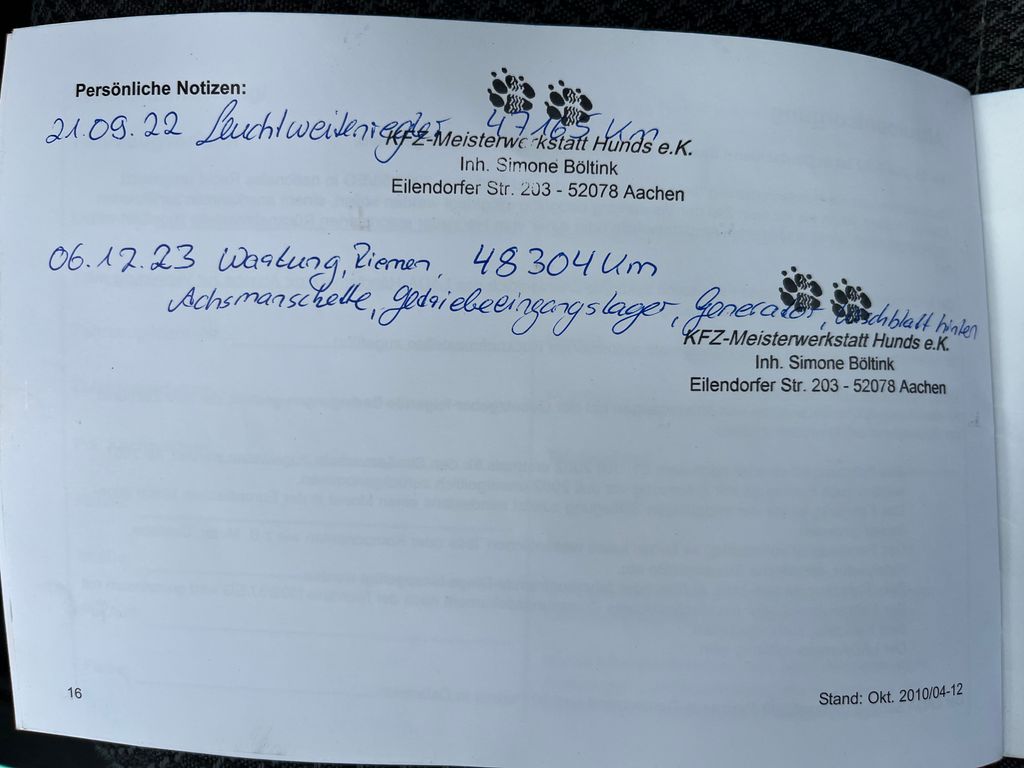 Persönliche Notizen:
21.09.22 Leuchtweitenregler 47165 Km
KFZ-Meisterwerkstatt Hunds e.K.
Inh. Simone Böltink
Eilendorfer Str. 203 - 52078 Aachen
06.12.23 Wartung, Riemen, 48304 Km
Achsmanschette, Getriebeeingangslager, Generator, Wischblatt hinten
KFZ-Meisterwerkstatt Hunds e.K.
Inh. Simone Böltink
Eilendorfer Str. 203 - 52078 Aachen
16
Stand: Okt. 2010/04-12